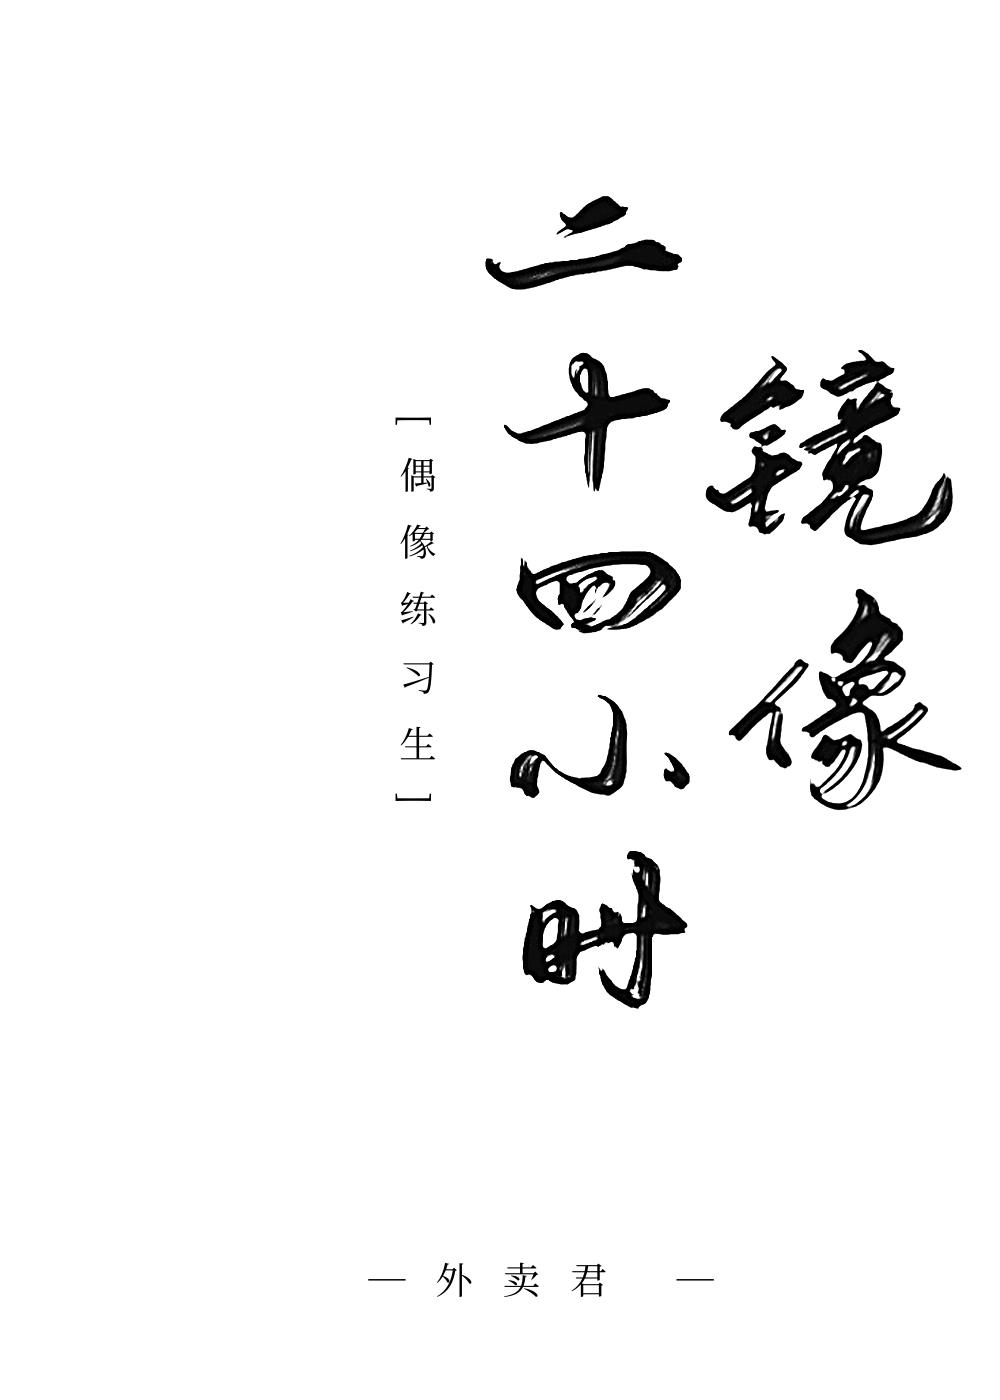 镜像
二十四小时
[偶像练习生]
—外卖君 —